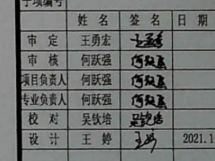 子项编号
姓 名 签 名 日 期
审 定 王勇宏
审 核 何跃强 何跃强
项目负责人 何跃强 何跃强
专业负责人 何跃强 何跃强
校 对 吴钦培 吴钦培
设 计 王 婷 王婷 2021.1